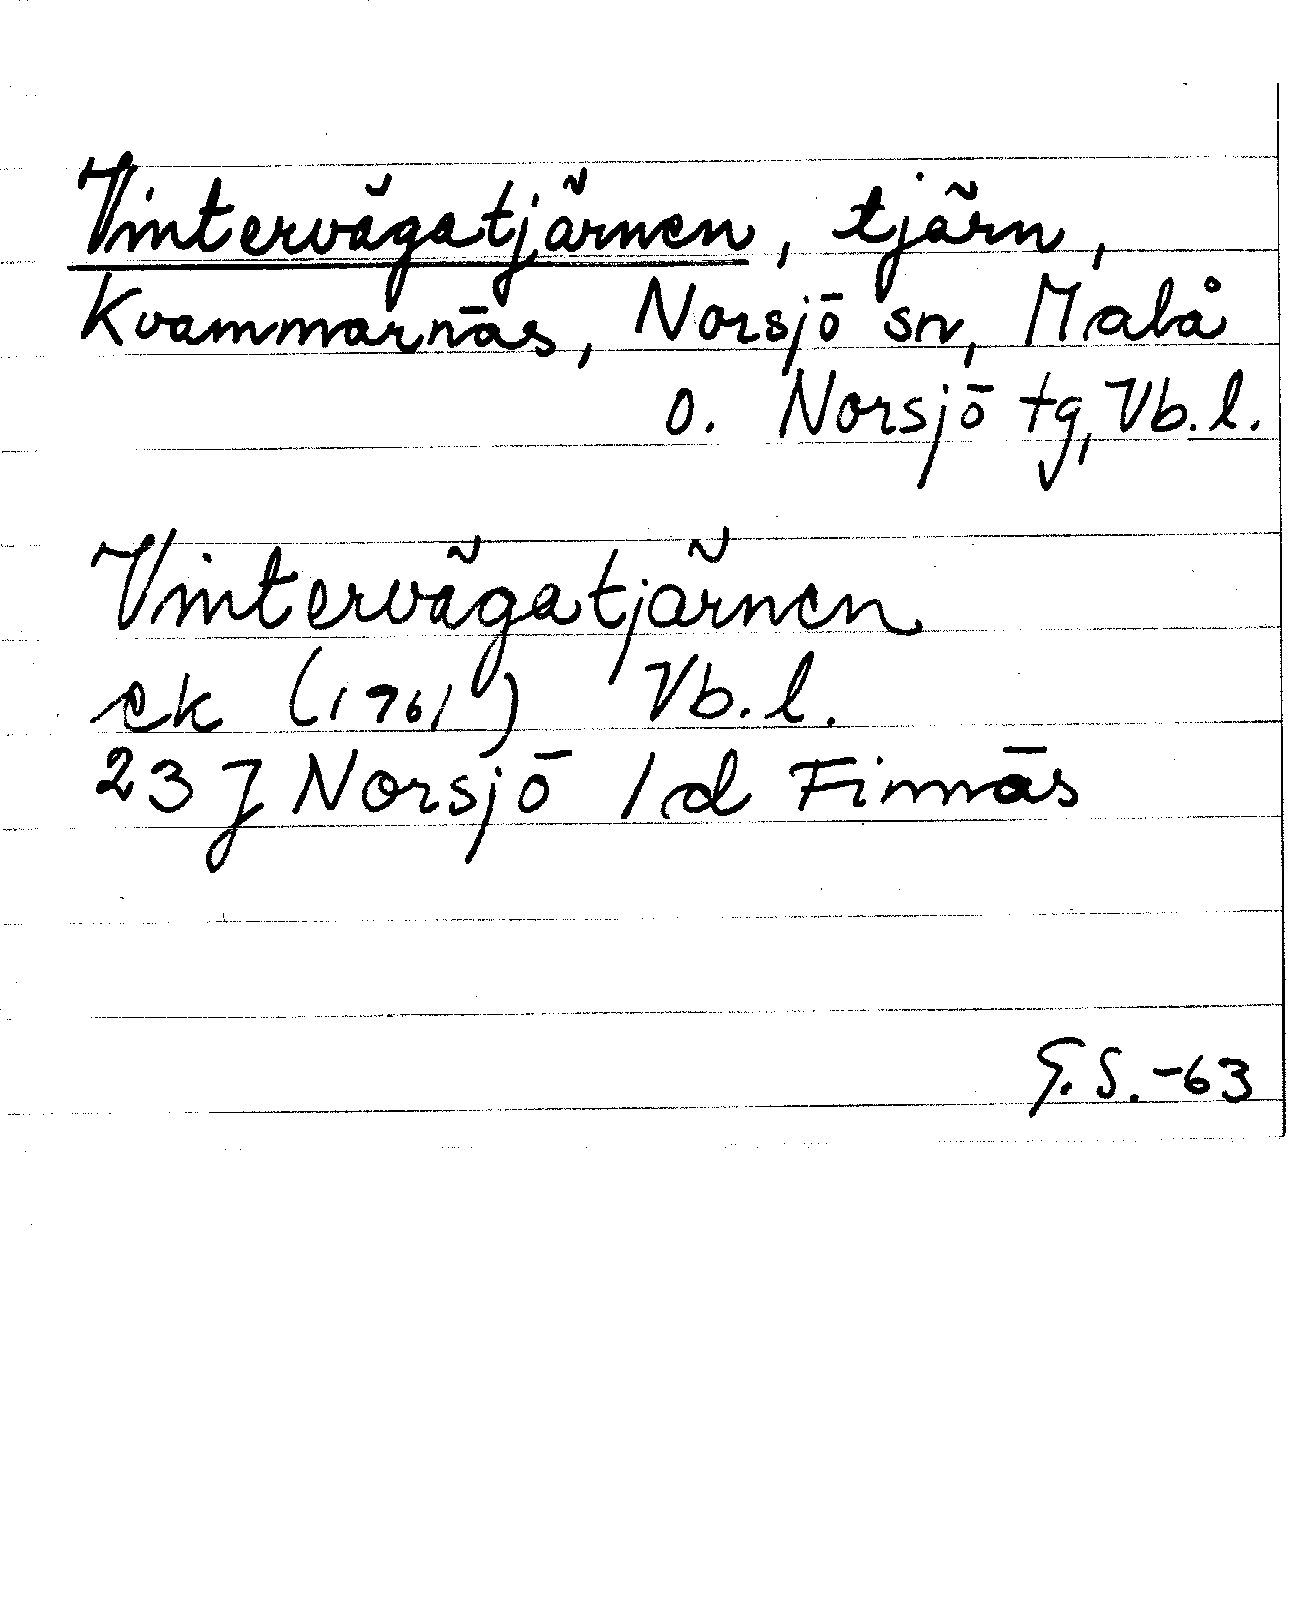 Vintervägatjärnen, tjärn,
Kvammarnäs, Norsjö sn, Malå
o. Norsjö tg, Vb.l.
Vintervägatjärnen
ek (1961) Vb.l.
23 J Norsjö 1d Finnäs
G.S.-63